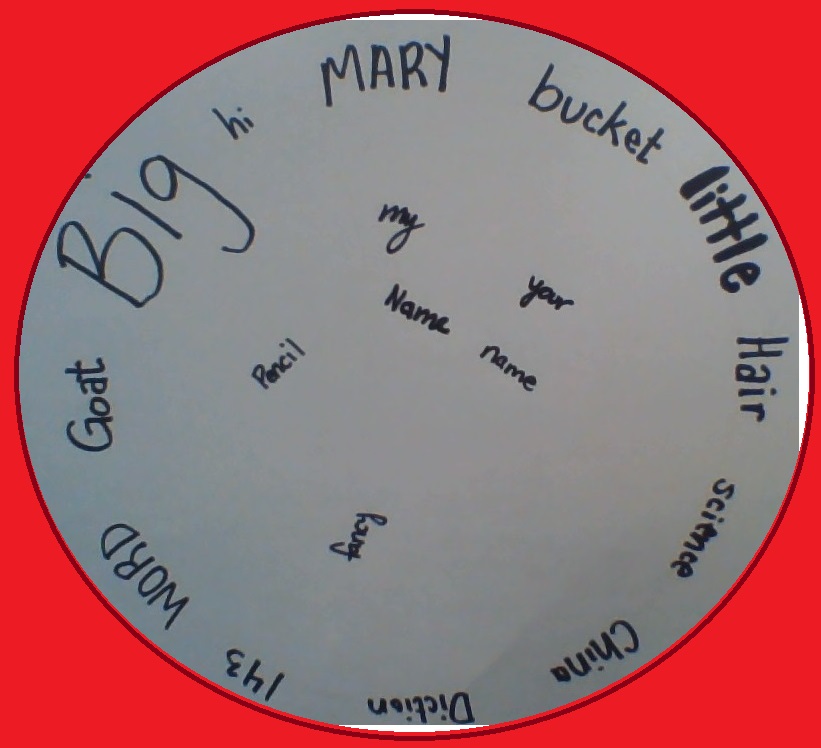 MARY
bucket
little
Hair
Science
China
Diction
143
WORD
Goat
Big
hi
my
Name
your
name
Pencil